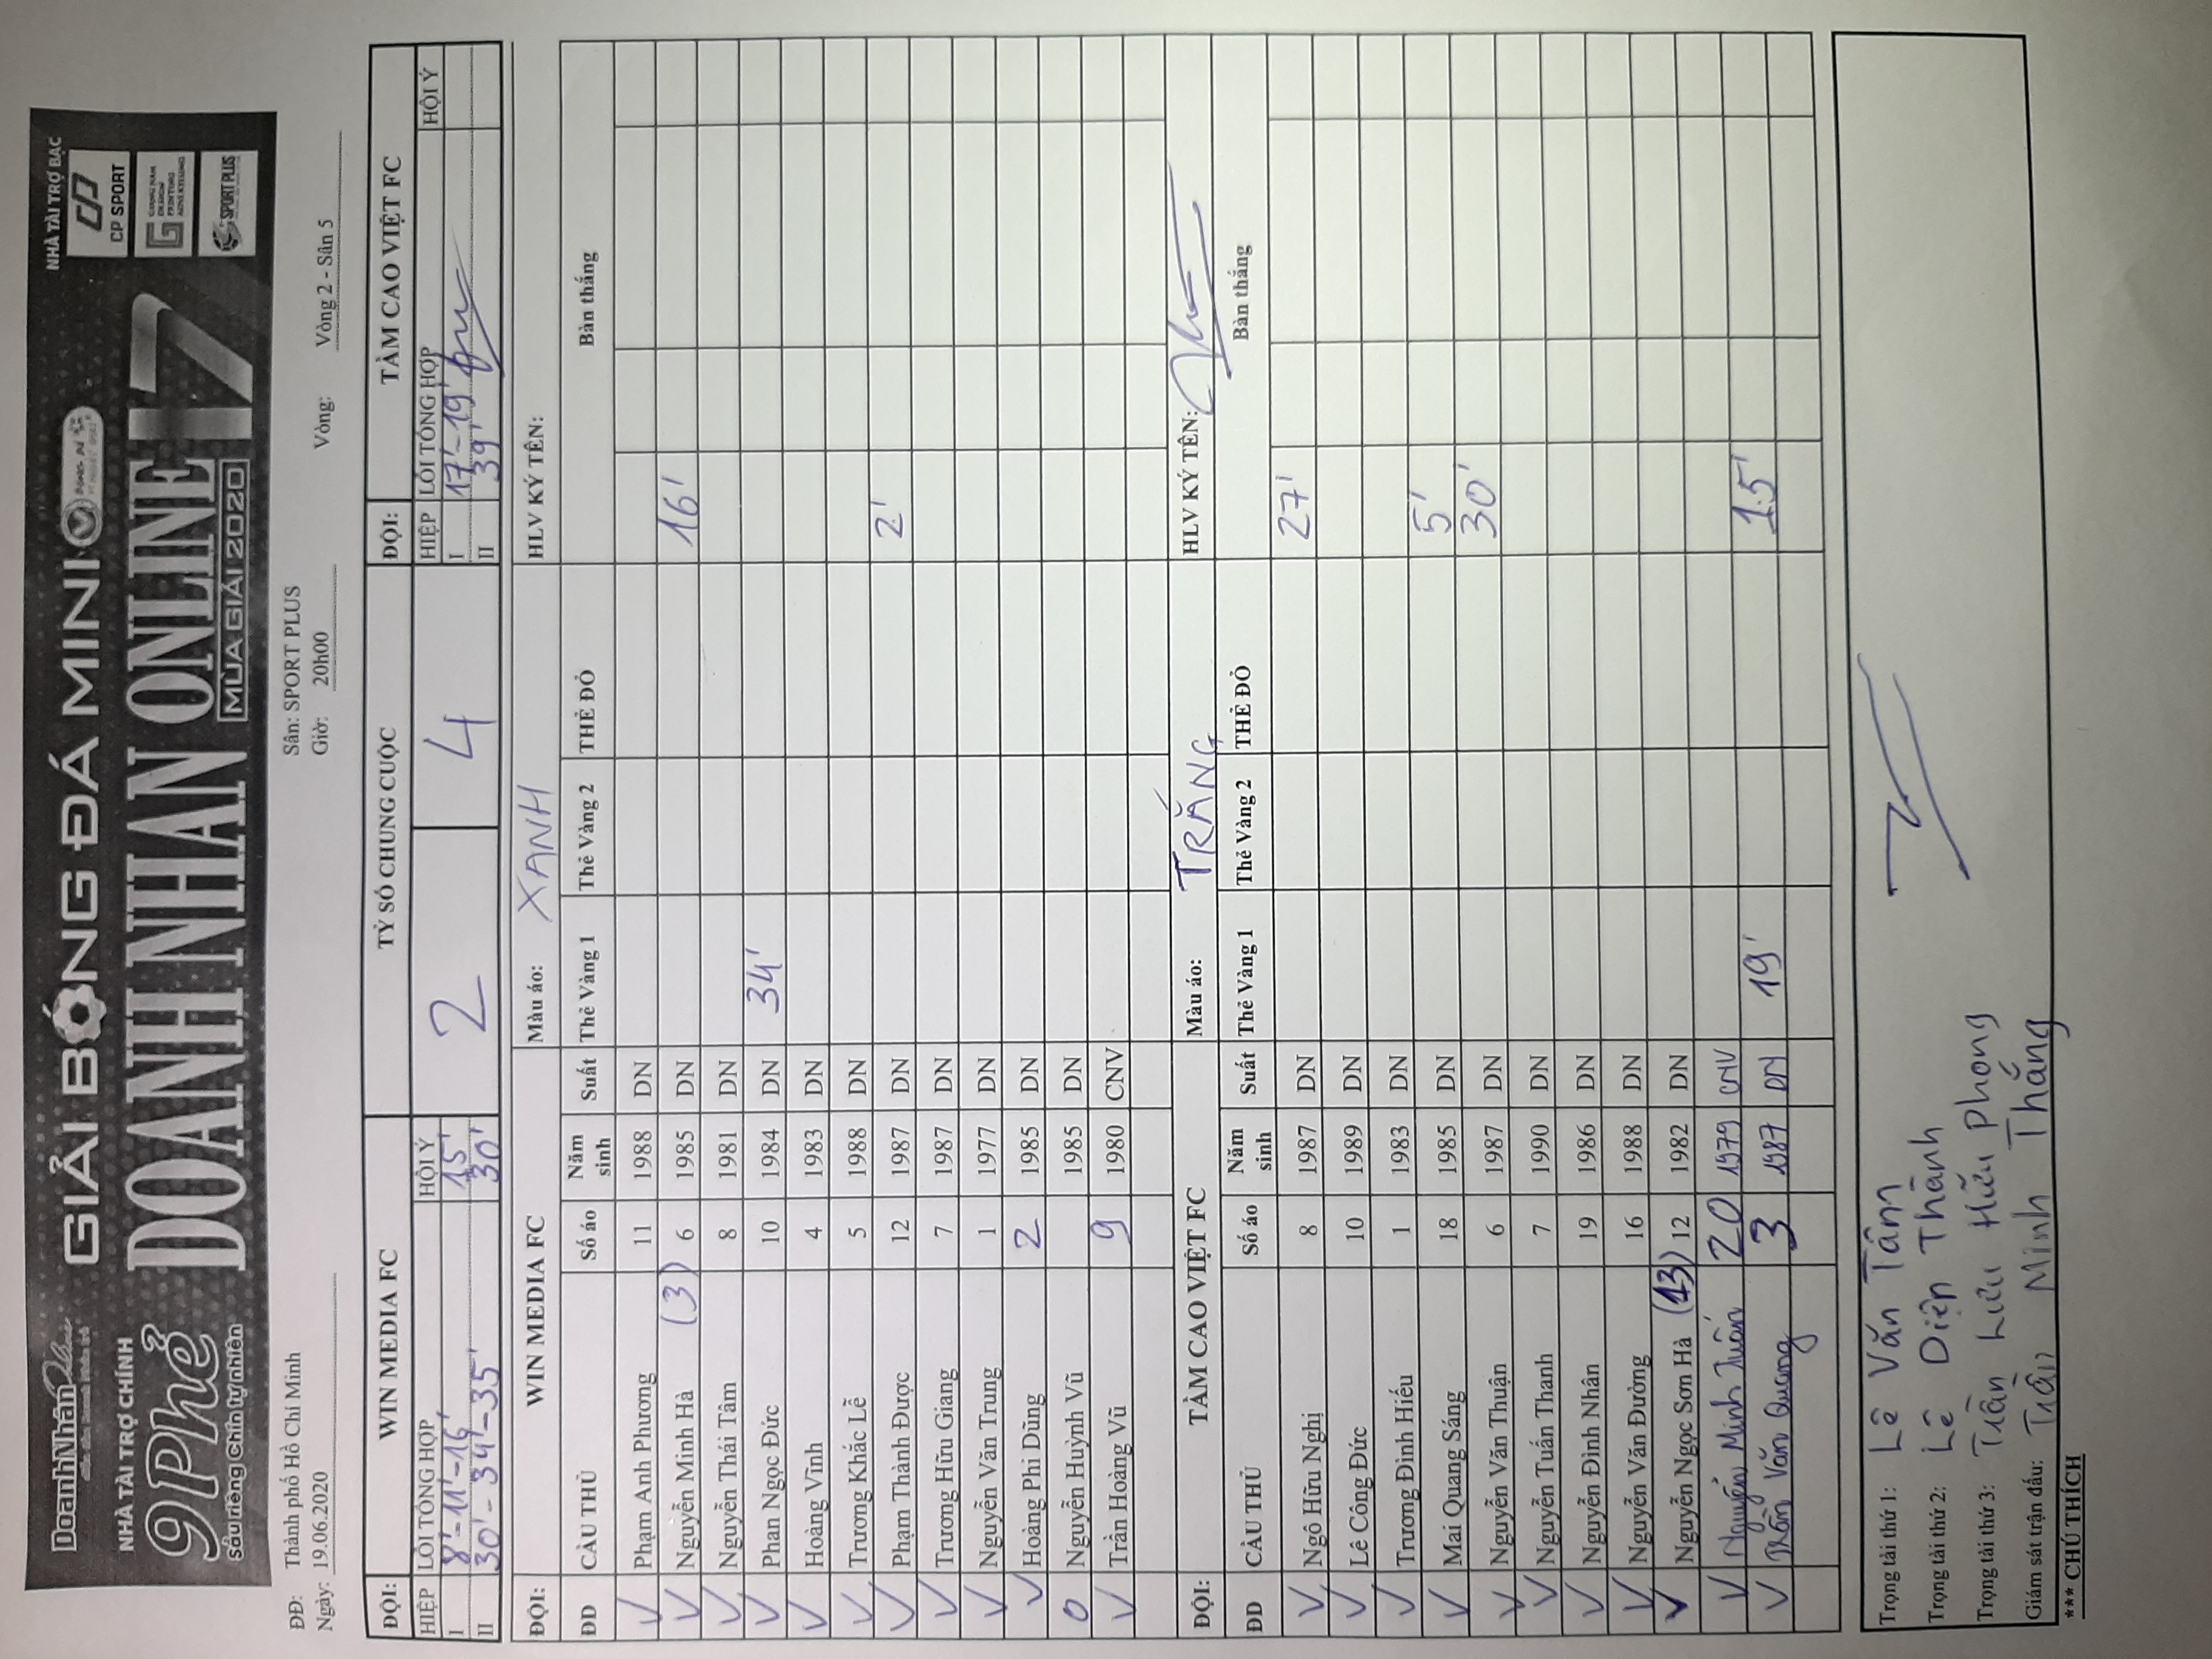 DoanhNhân Plus
NHÀ TÀI TRỢ CHÍNH
9Phẻ
Sầu riêng Chín tự nhiên
GIẢI BÓNG ĐÁ MINI
DOANH NHÂN ONLINE 17
MÙA GIẢI 2020
NHÀ TÀI TRỢ BẠC
CP SPORT
SPORT PLUS
ĐĐ: Thành phố Hồ Chí Minh Sân: SPORT PLUS
Ngày: 19.06.2020 Giờ: 20h00 Vòng: Vòng 2 - Sân 5
ĐỘI: WIN MEDIA FC TỶ SỐ CHUNG CUỘC ĐỘI: TÂM CAO VIỆT FC
HIỆP LỖI TỔNG HỢP HỘI Ý 2 4 HIỆP LỖI TỔNG HỢP HỘI Ý
I 8'-11'-16' 15' I 17'-19'
II 30'-34'-35' 30' II 39'
ĐỘI: WIN MEDIA FC Màu áo: XANH HLV KÝ TÊN:
ĐD CẦU THỦ Số áo Năm sinh Suất Thẻ Vàng 1 Thẻ Vàng 2 THẺ ĐỎ Bàn thắng
V Phạm Anh Phương 11 1988 DN
V Nguyễn Minh Hà (3) 6 1985 DN 16'
V Nguyễn Thái Tâm 8 1981 DN
V Phan Ngọc Đức 10 1984 DN 34'
V Hoàng Vĩnh 4 1983 DN
V Trương Khắc Lễ 5 1988 DN
V Phạm Thành Được 12 1987 DN 2'
V Trương Hữu Giang 7 1987 DN
V Nguyễn Văn Trung 1 1977 DN
V Hoàng Phi Dũng 2 1985 DN
0 Nguyễn Huỳnh Vũ 1985 DN
V Trần Hoàng Vũ 9 1980 CNV
ĐỘI: TÂM CAO VIỆT FC Màu áo: TRẮNG HLV KÝ TÊN:
ĐD CẦU THỦ Số áo Năm sinh Suất Thẻ Vàng 1 Thẻ Vàng 2 THẺ ĐỎ Bàn thắng
V Ngô Hữu Nghị 8 1987 DN 27'
V Lê Công Đức 10 1989 DN
V Trương Đình Hiếu 1 1983 DN
V Mai Quang Sáng 18 1985 DN 5'
V Nguyễn Văn Thuận 6 1987 DN 30'
V Nguyễn Tuấn Thanh 7 1990 DN
V Nguyễn Đình Nhân 19 1986 DN
V Nguyễn Văn Đường 16 1988 DN
V Nguyễn Ngọc Sơn Hà (13) 12 1982 DN
V Nguyễn Minh Tuấn 20 1979 CNV
V Trần Văn Quang 3 1987 DN 19' 15'
Trọng tài thứ 1: Lê Văn Tâm
Trọng tài thứ 2: Lê Diện Thành
Trọng tài thứ 3: Trần Lưu Hữu Phong
Giám sát trận đấu: Trần Minh Thắng
*** CHÚ THÍCH